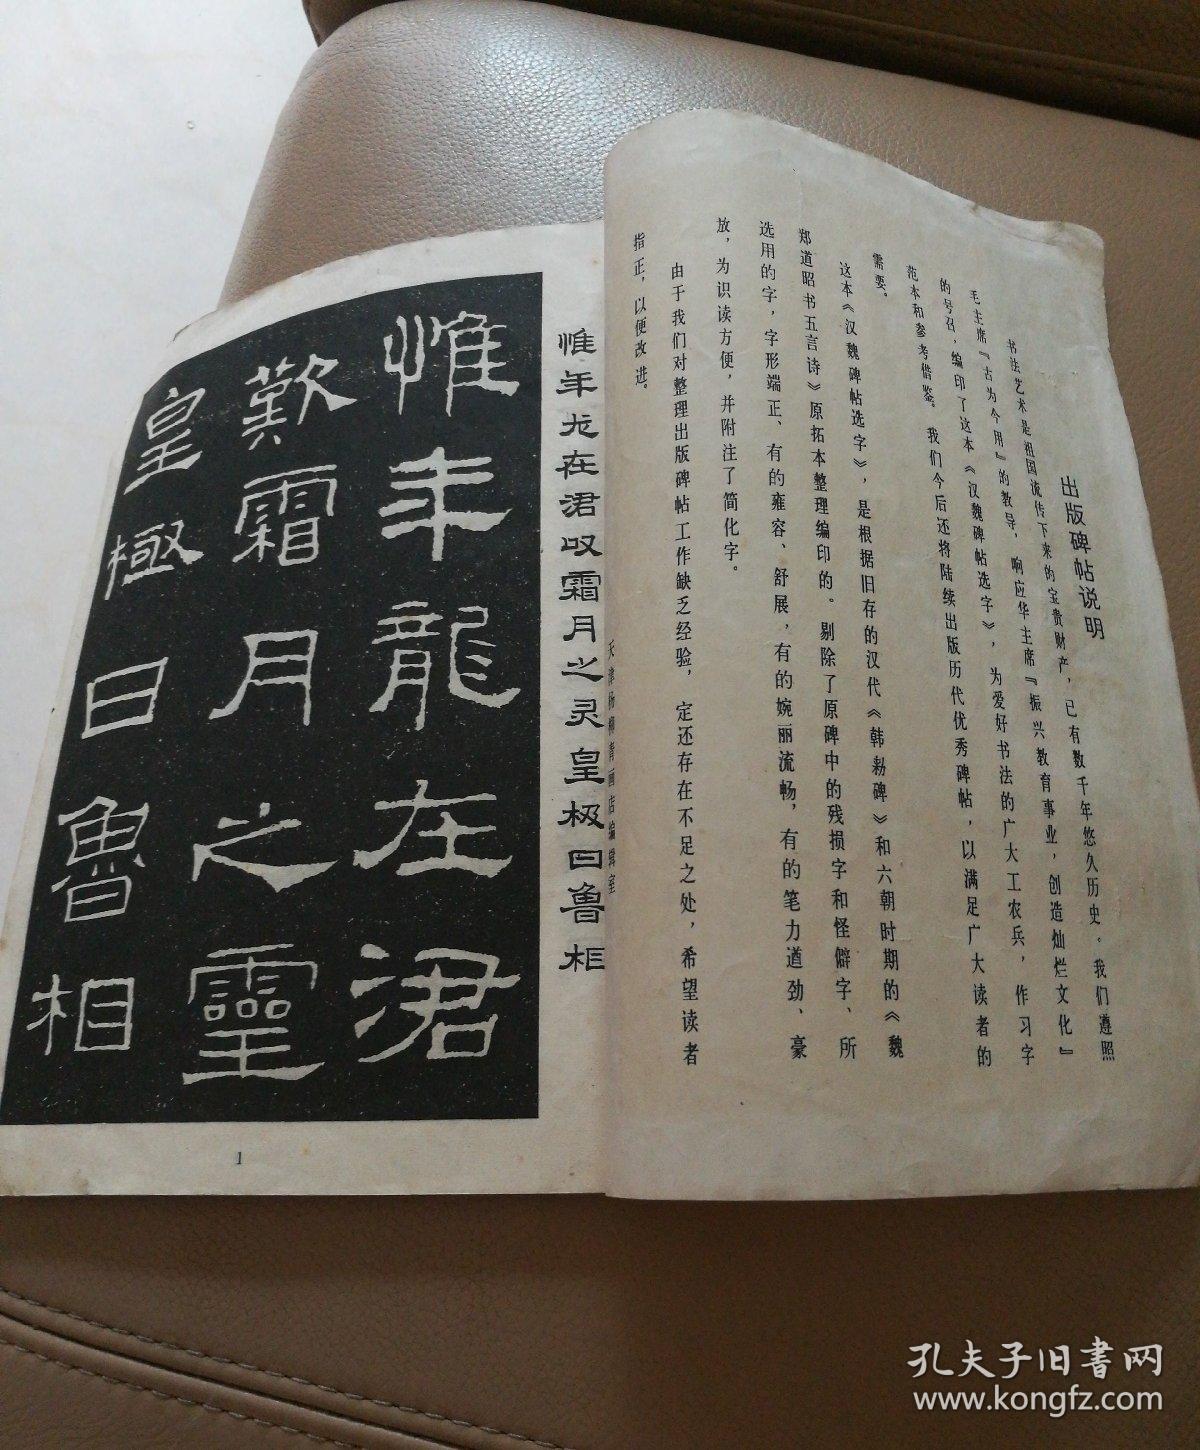 出版碑帖说明
书法艺术是祖国流传下来的宝贵财产，已有数千年悠久历史。我们遵照
毛主席『古为今用』的教导，响应华主席『振兴教育事业，创造灿烂文化』
的号召，编印了这本《汉魏碑帖选字》，为爱好书法的广大工农兵，作习字
范本和参考借鉴。我们今后还将陆续出版历代优秀碑帖，以满足广大读者的
需要。
这本《汉魏碑帖选字》，是根据旧存的汉代《韩勑碑》和六朝时期的《魏
郑道昭书五言诗》原拓本整理编印的。剔除了原碑中的残损字和怪僻字、所
选用的字，字形端正、有的雍容、舒展，有的婉丽流畅，有的笔力遒劲、豪
放，为识读方便，并附注了简化字。
由于我们对整理出版碑帖工作缺乏经验，定还存在不足之处，希望读者
指正，以便改进。
天津杨柳青画店编辑室
惟年龙在涒叹霜月之灵皇极曰鲁相
惟年龍在涒
歎霜月之靈
皇極曰魯相
1
孔夫子旧书网
www.kongfz.com